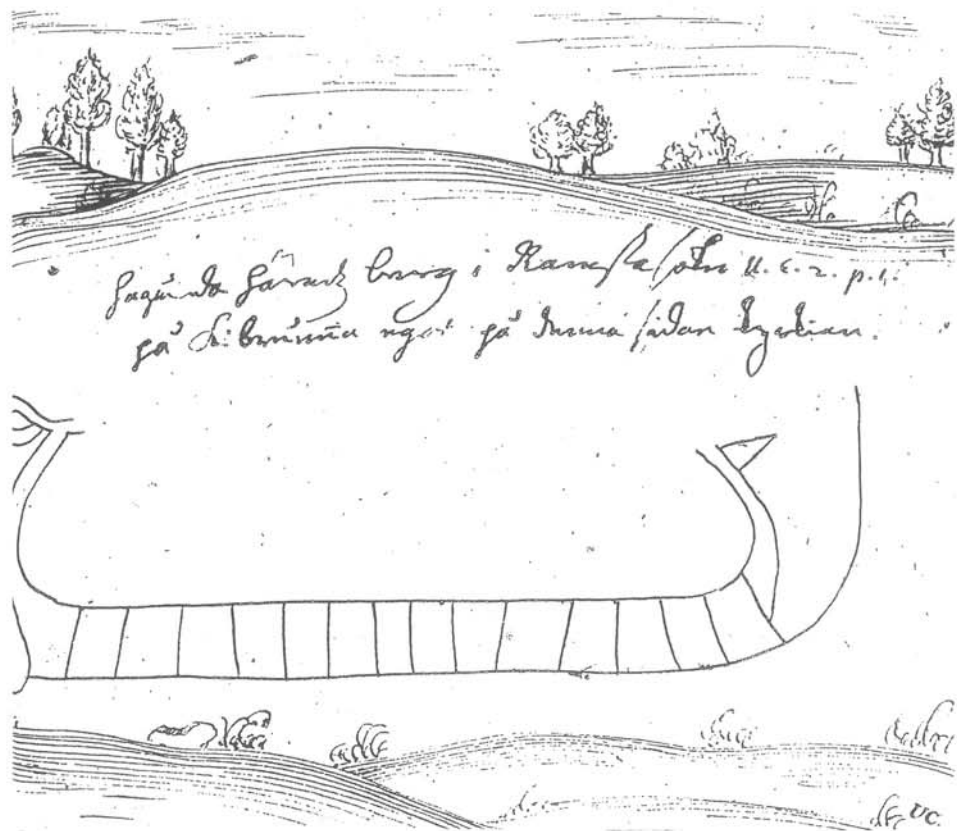 Hagunda häradz berg i Ramsta sokn U. E. 2. p. 1.
på Kibrunna egor på denna sidan kyrkian.